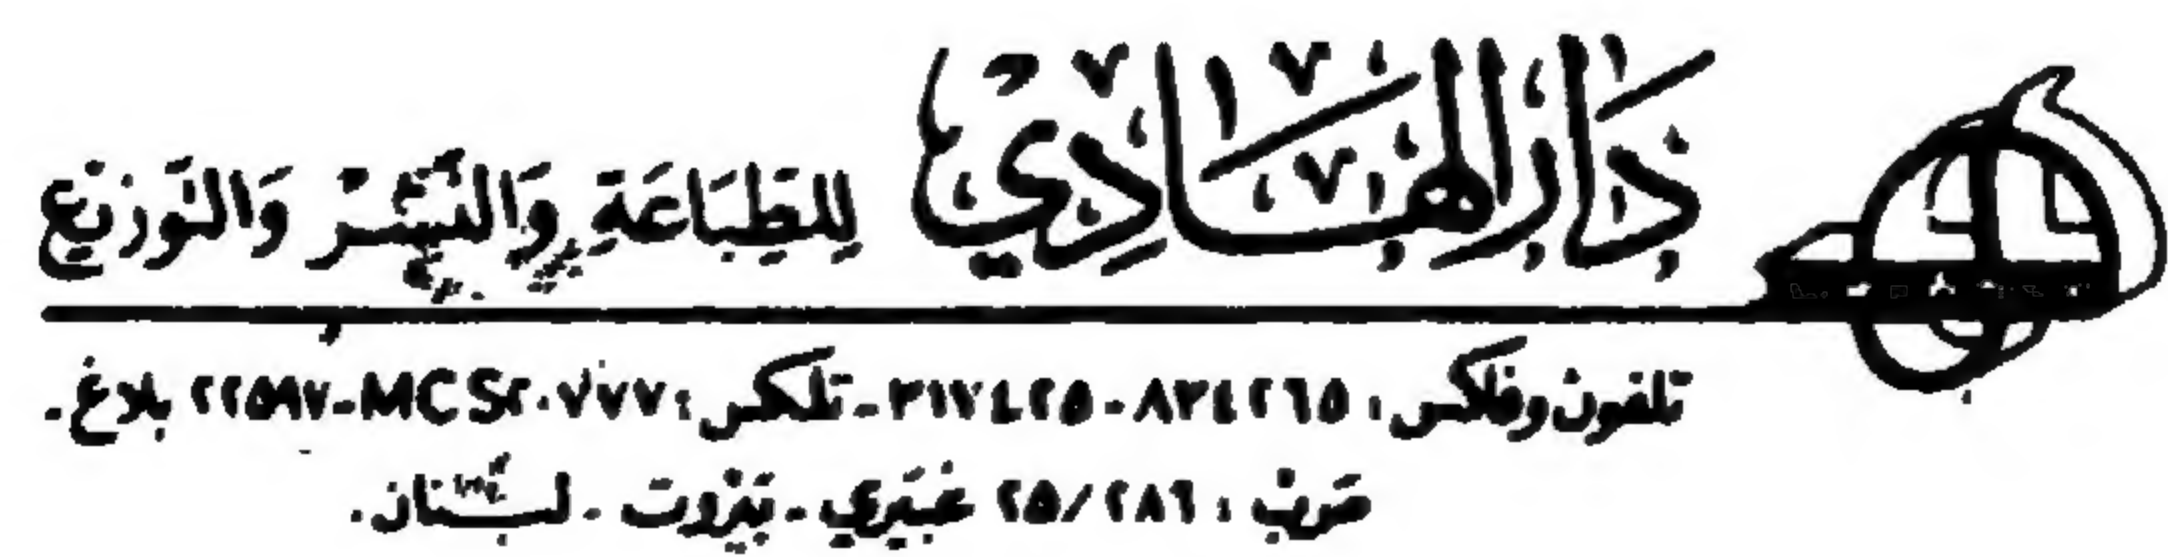 دَارُ الهَادِي لِلطِّبَاعَةِ وَالنَّشْرِ وَالتَّوْزِيعِ
تلفون وفاكس: ٨٣٤٢٦٥-٣١٧٤٢٥-تلكس: MCS٢٠٧٧٧-٢٢٥٩٧ بلاغ-
ص.ب: ٢٥/٢٨٦ غبيري - بيروت - لبنان.